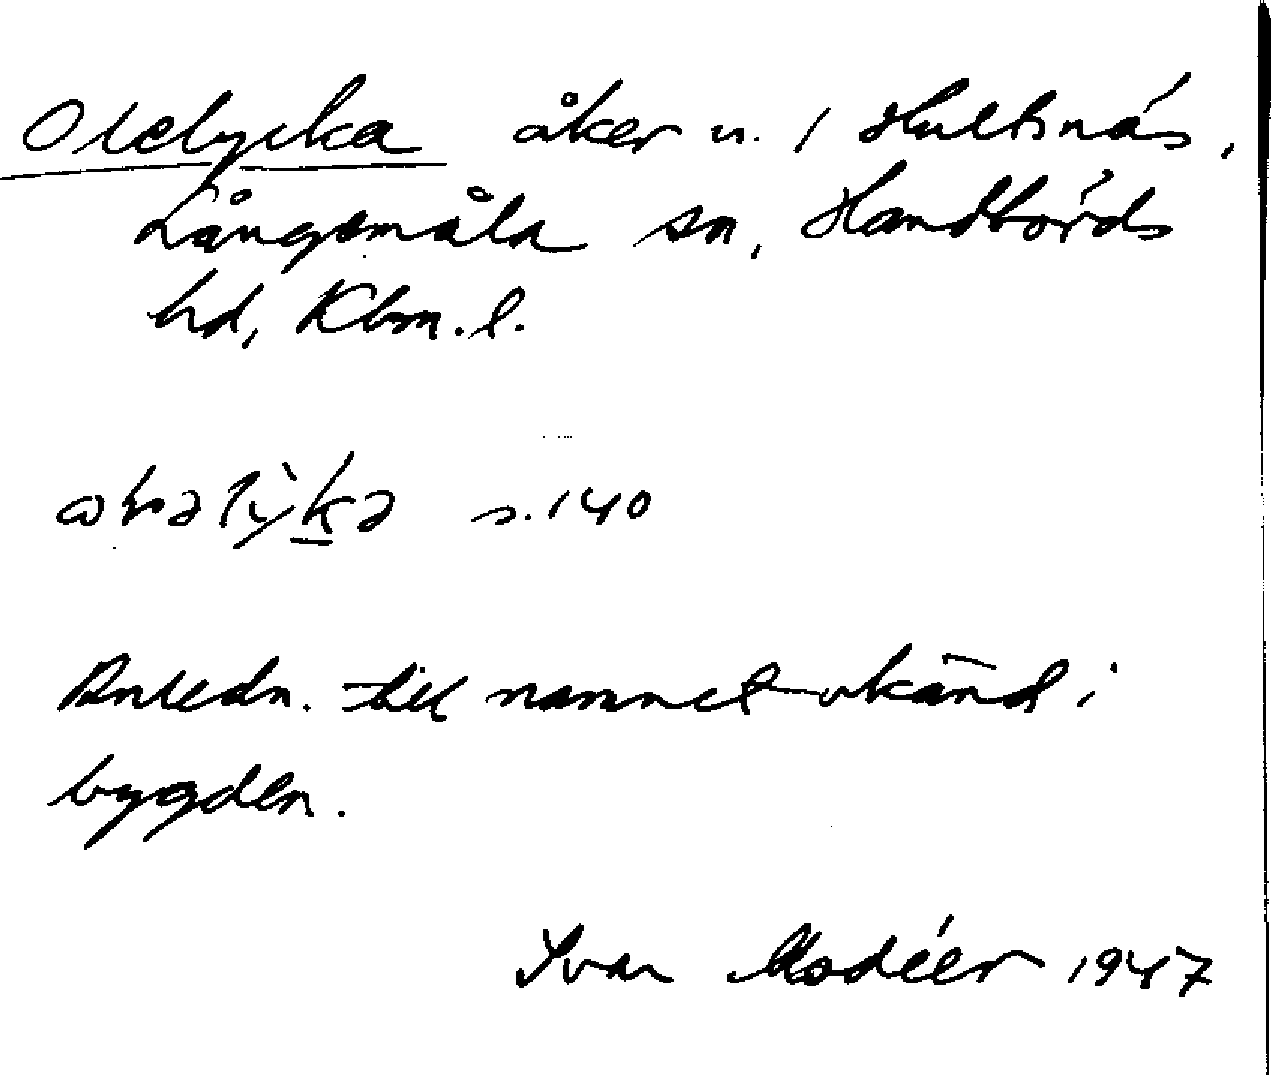 Olelycka åker u. 1 Hultsnäs,
Långemåla sn, Handbörds
hd, Klbm. l.
s. 140
Anledn. till namnet okänd i
bygden.
Ivar Modéer 1947